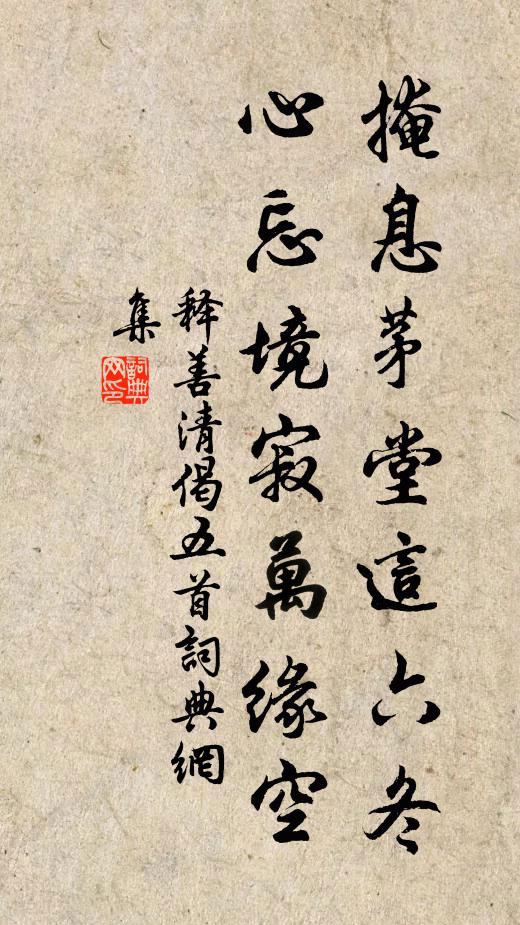 掩息茅堂這六冬
心忘境寂萬緣空
释善清偈五首詞典網
集
詞典
网印